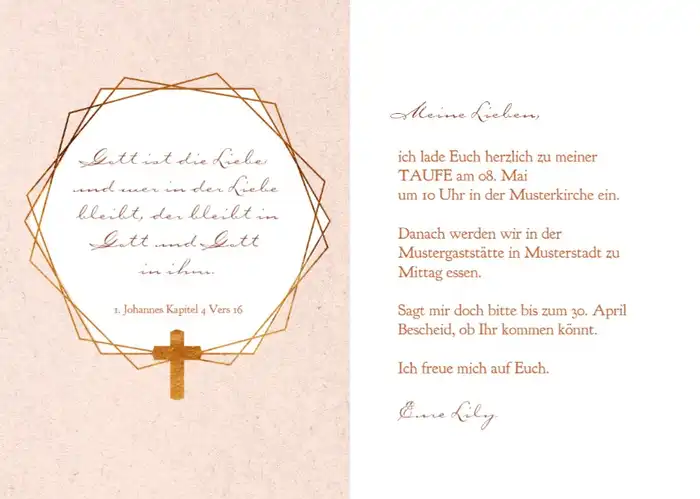 Gott ist die Liebe
und wer in der Liebe
bleibt, der bleibt in
Gott und Gott
in ihm.
1. Johannes Kapitel 4 Vers 16
Meine Lieben,
ich lade Euch herzlich zu meiner
TAUFE am 08. Mai
um 10 Uhr in der Musterkirche ein.
Danach werden wir in der
Mustergaststätte in Musterstadt zu
Mittag essen.
Sagt mir doch bitte bis zum 30. April
Bescheid, ob Ihr kommen könnt.
Ich freue mich auf Euch.
Eure Lily